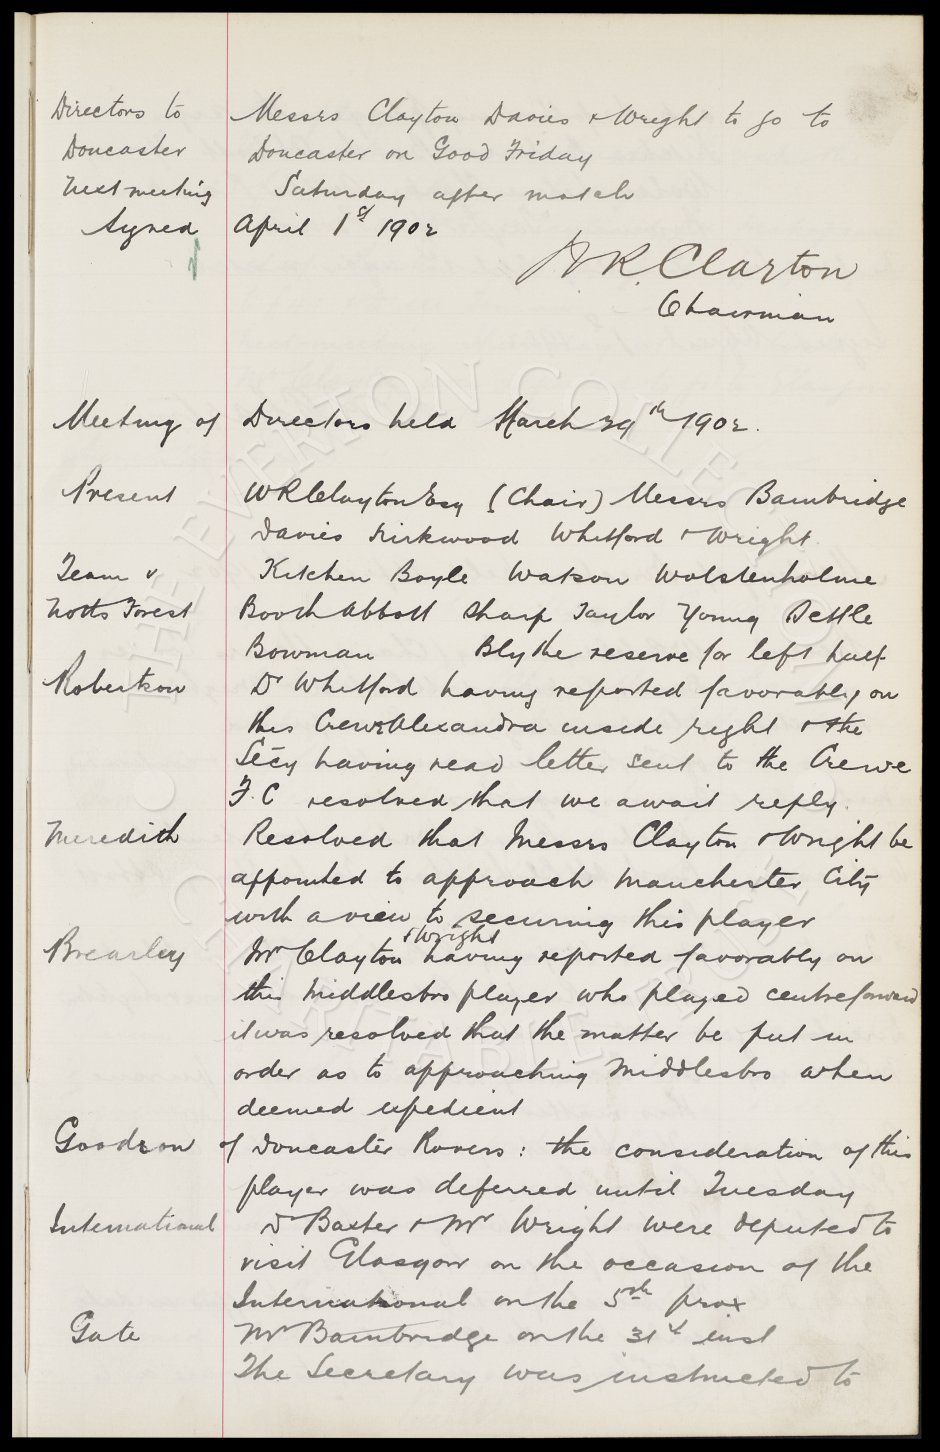 Directors to Messrs Clayton Davies & Wright to go to
Doncaster Doncaster on Good Friday
Next meeting Saturday after match
Signed April 1st 1902
W R Clayton
Chairman
Meeting of Directors held March 29th 1902.
Present W R Clayton Esq (Chair) Messrs Bainbridge
Davies Kirkwood Whitford & Wright
Team v Kitchen Boyle Watson Wolstenholme
Notts Forest Booth Abbott Sharp Taylor Young Settle
Bowman Blythe reserve for left half
Robertson Dr Whitford having reported favorably on
this Crewe Alexandra inside right & the
Secy having read letter sent to the Crewe
F.C resolved that we await reply.
Meredith Resolved that Messrs Clayton & Wright be
appointed to approach Manchester City
with a view to securing this player
Brearley Mr Clayton & Wright having reported favorably on
this Middlesbro player who played centre forward
it was resolved that the matter be put in
order as to approaching Middlesbro when
deemed expedient
Goodson of Doncaster Rovers: the consideration of this
player was deferred until Tuesday
International Dr Baxter & Mr Wright were deputed to
visit Glasgow on the occasion of the
International on the 5th prox
Gate Mr Bainbridge on the 31st inst
The Secretary was instructed to
THE EVERTON COLLECTION
CHARITABLE TRUST